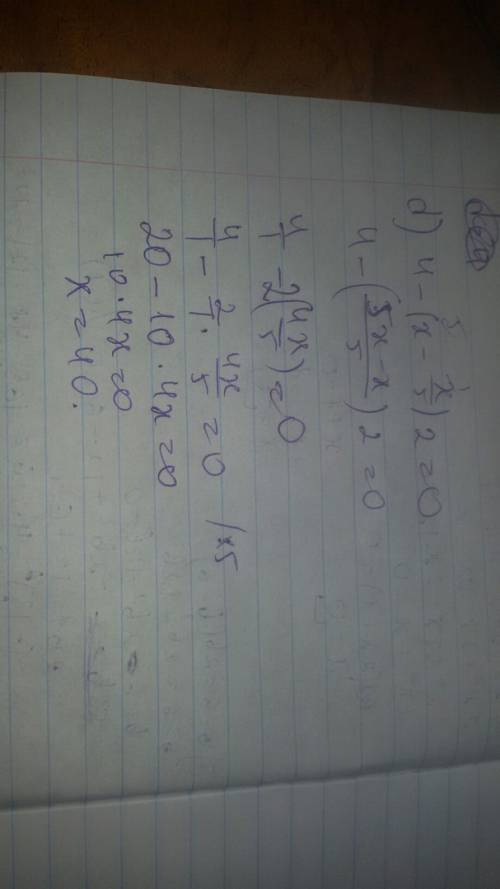 d) 4 - (x - x/5) 2 = 0
4 - ((5x - x)/5) 2 = 0
4/1 - 2(4x/5) = 0
4/1 - 2/1 · 4x/5 = 0 / x5
20 - 10 · 4x = 0
10 · 4x = 0
x = 40.